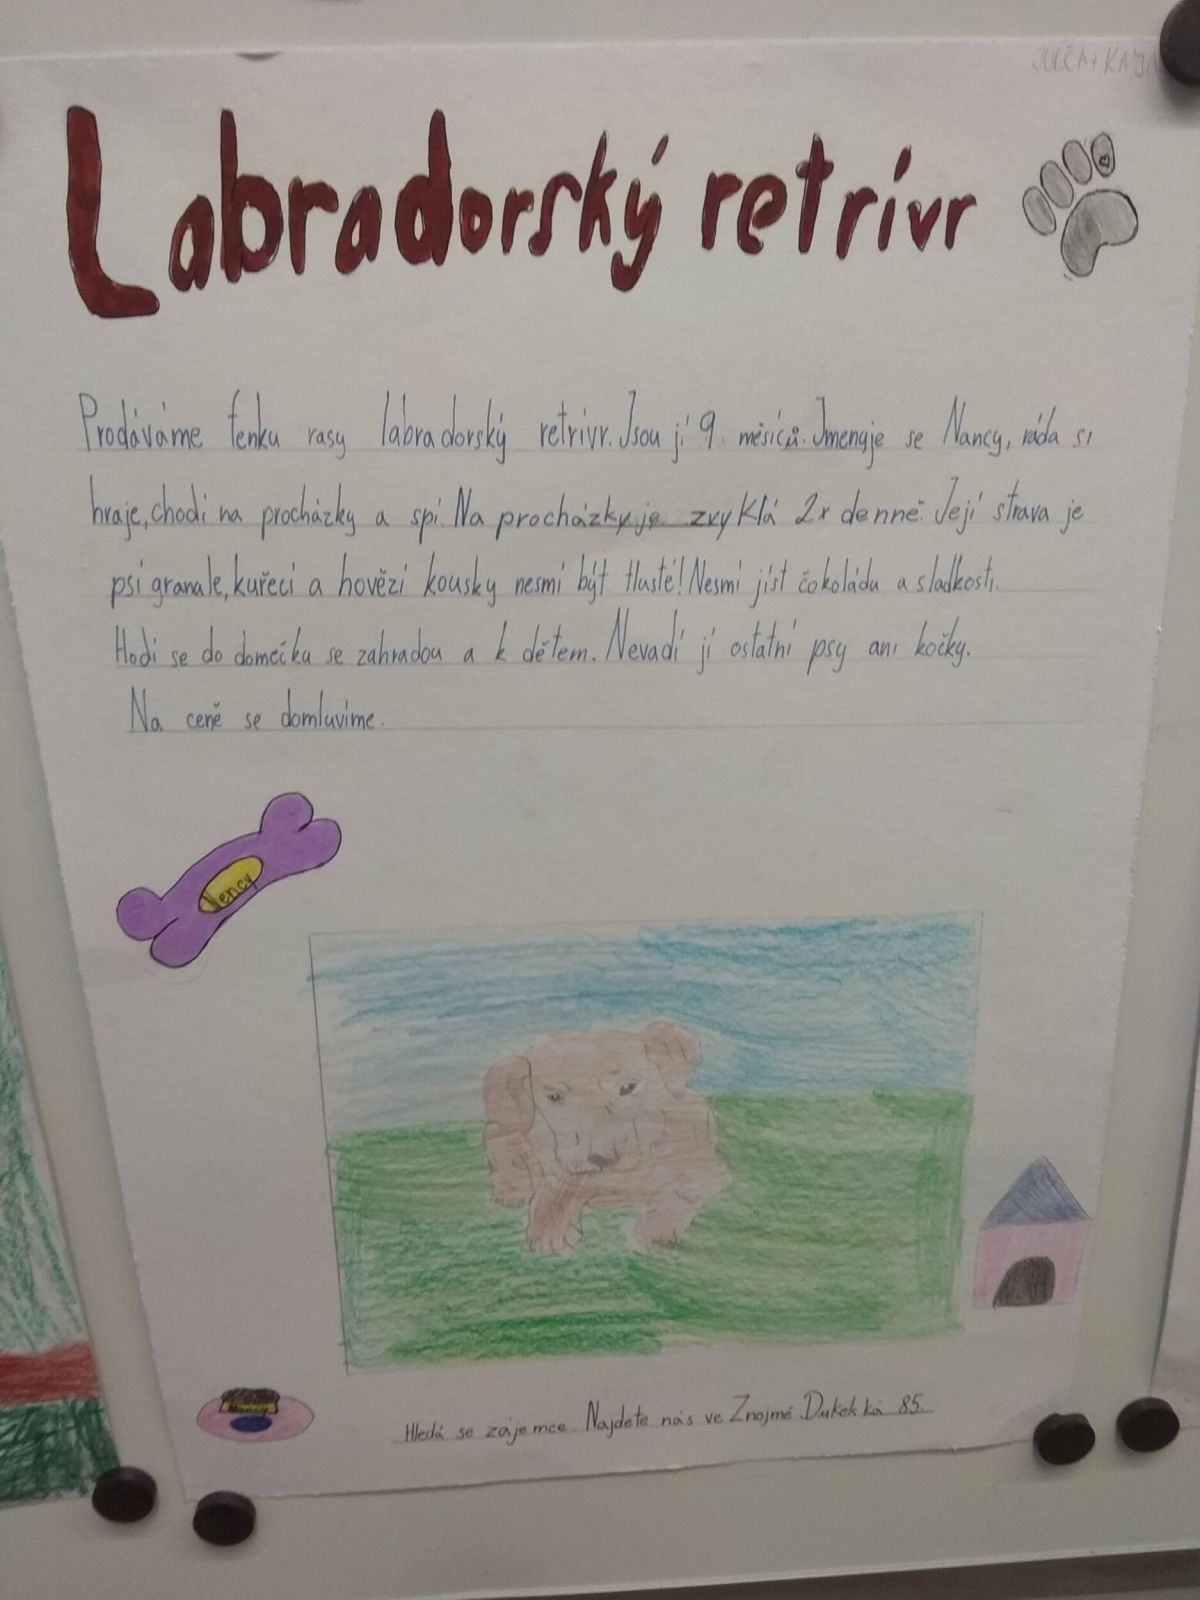 JULČA + KÁJA
Labradorský retrívr
Prodáváme fenku rasy labradorský retrívr. Jsou jí 9 měsíců. Jmenuje se Nancy, ráda si
hraje, chodí na procházky a spí. Na procházky je zvyklá 2x denně. Její strava je
psí granale, kuřecí a hovězí kousky nesmí být tlusté! Nesmí jíst čokoládu a sladkosti.
Hodí se do domečku se zahradou a k dětem. Nevadí jí ostatní psy ani kočky.
Na ceně se domluvíme.
Nency
Hledá se zájemce. Najdete nás ve Znojmě 85.